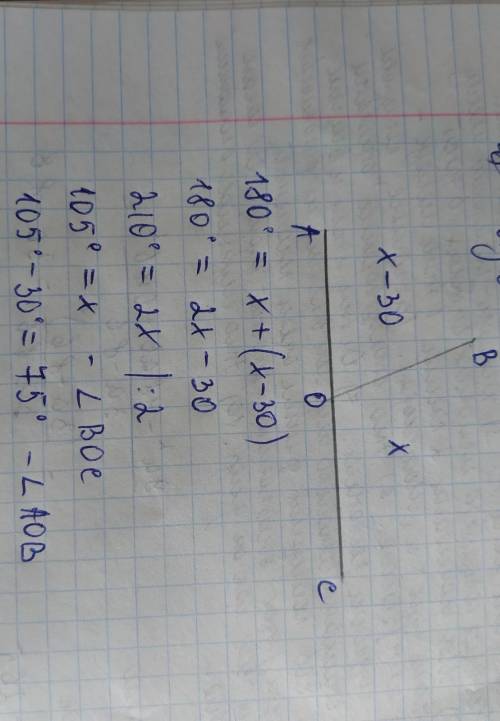 B
x - 30 x
A O C
180° = x + (x - 30)
180° = 2x - 30
210° = 2x | : 2
105° = x - ∠ BOC
105° - 30° = 75° - ∠ AOB